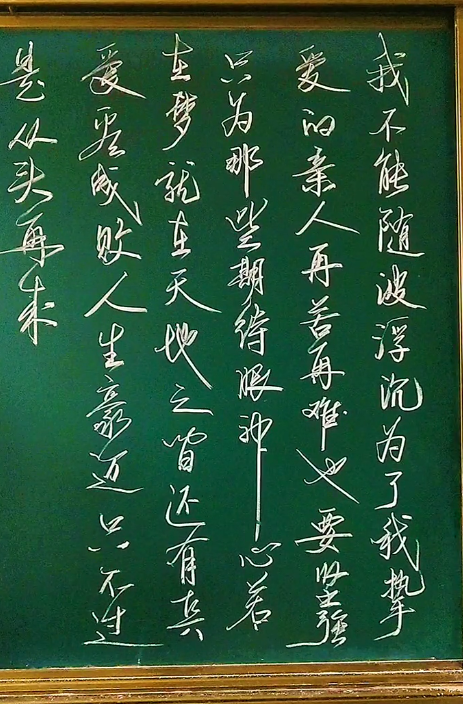 我不能随波浮沉为了我挚
爱的亲人再苦再难也要坚强
只为那些期待眼神心若
在梦就在天地之间还有真
爱看成败人生豪迈只不过
是从头再来